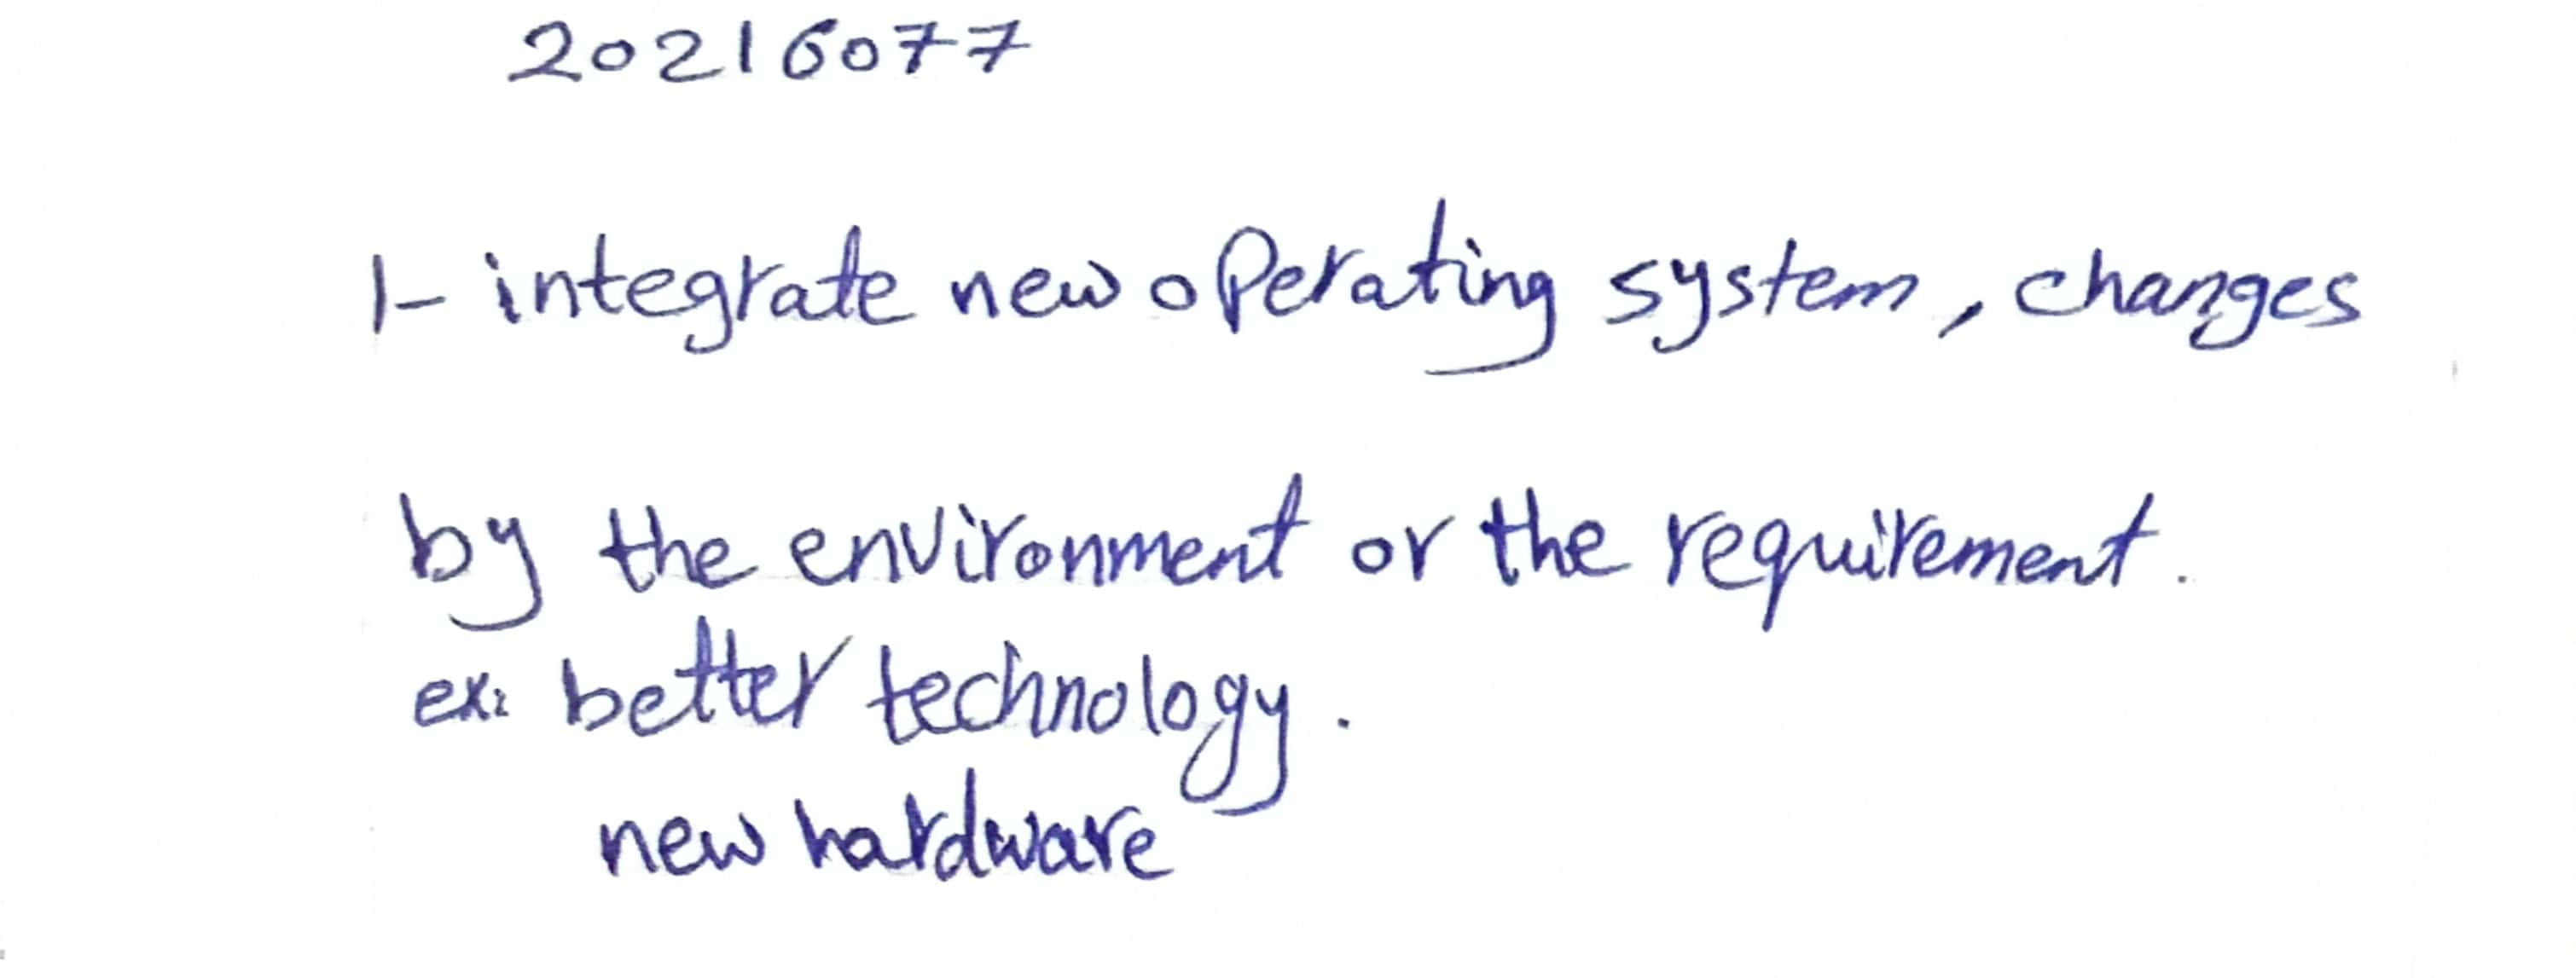 20216077
1- integrate new operating system, changes
by the environment or the requirement.
ex: better technology.
new hardware